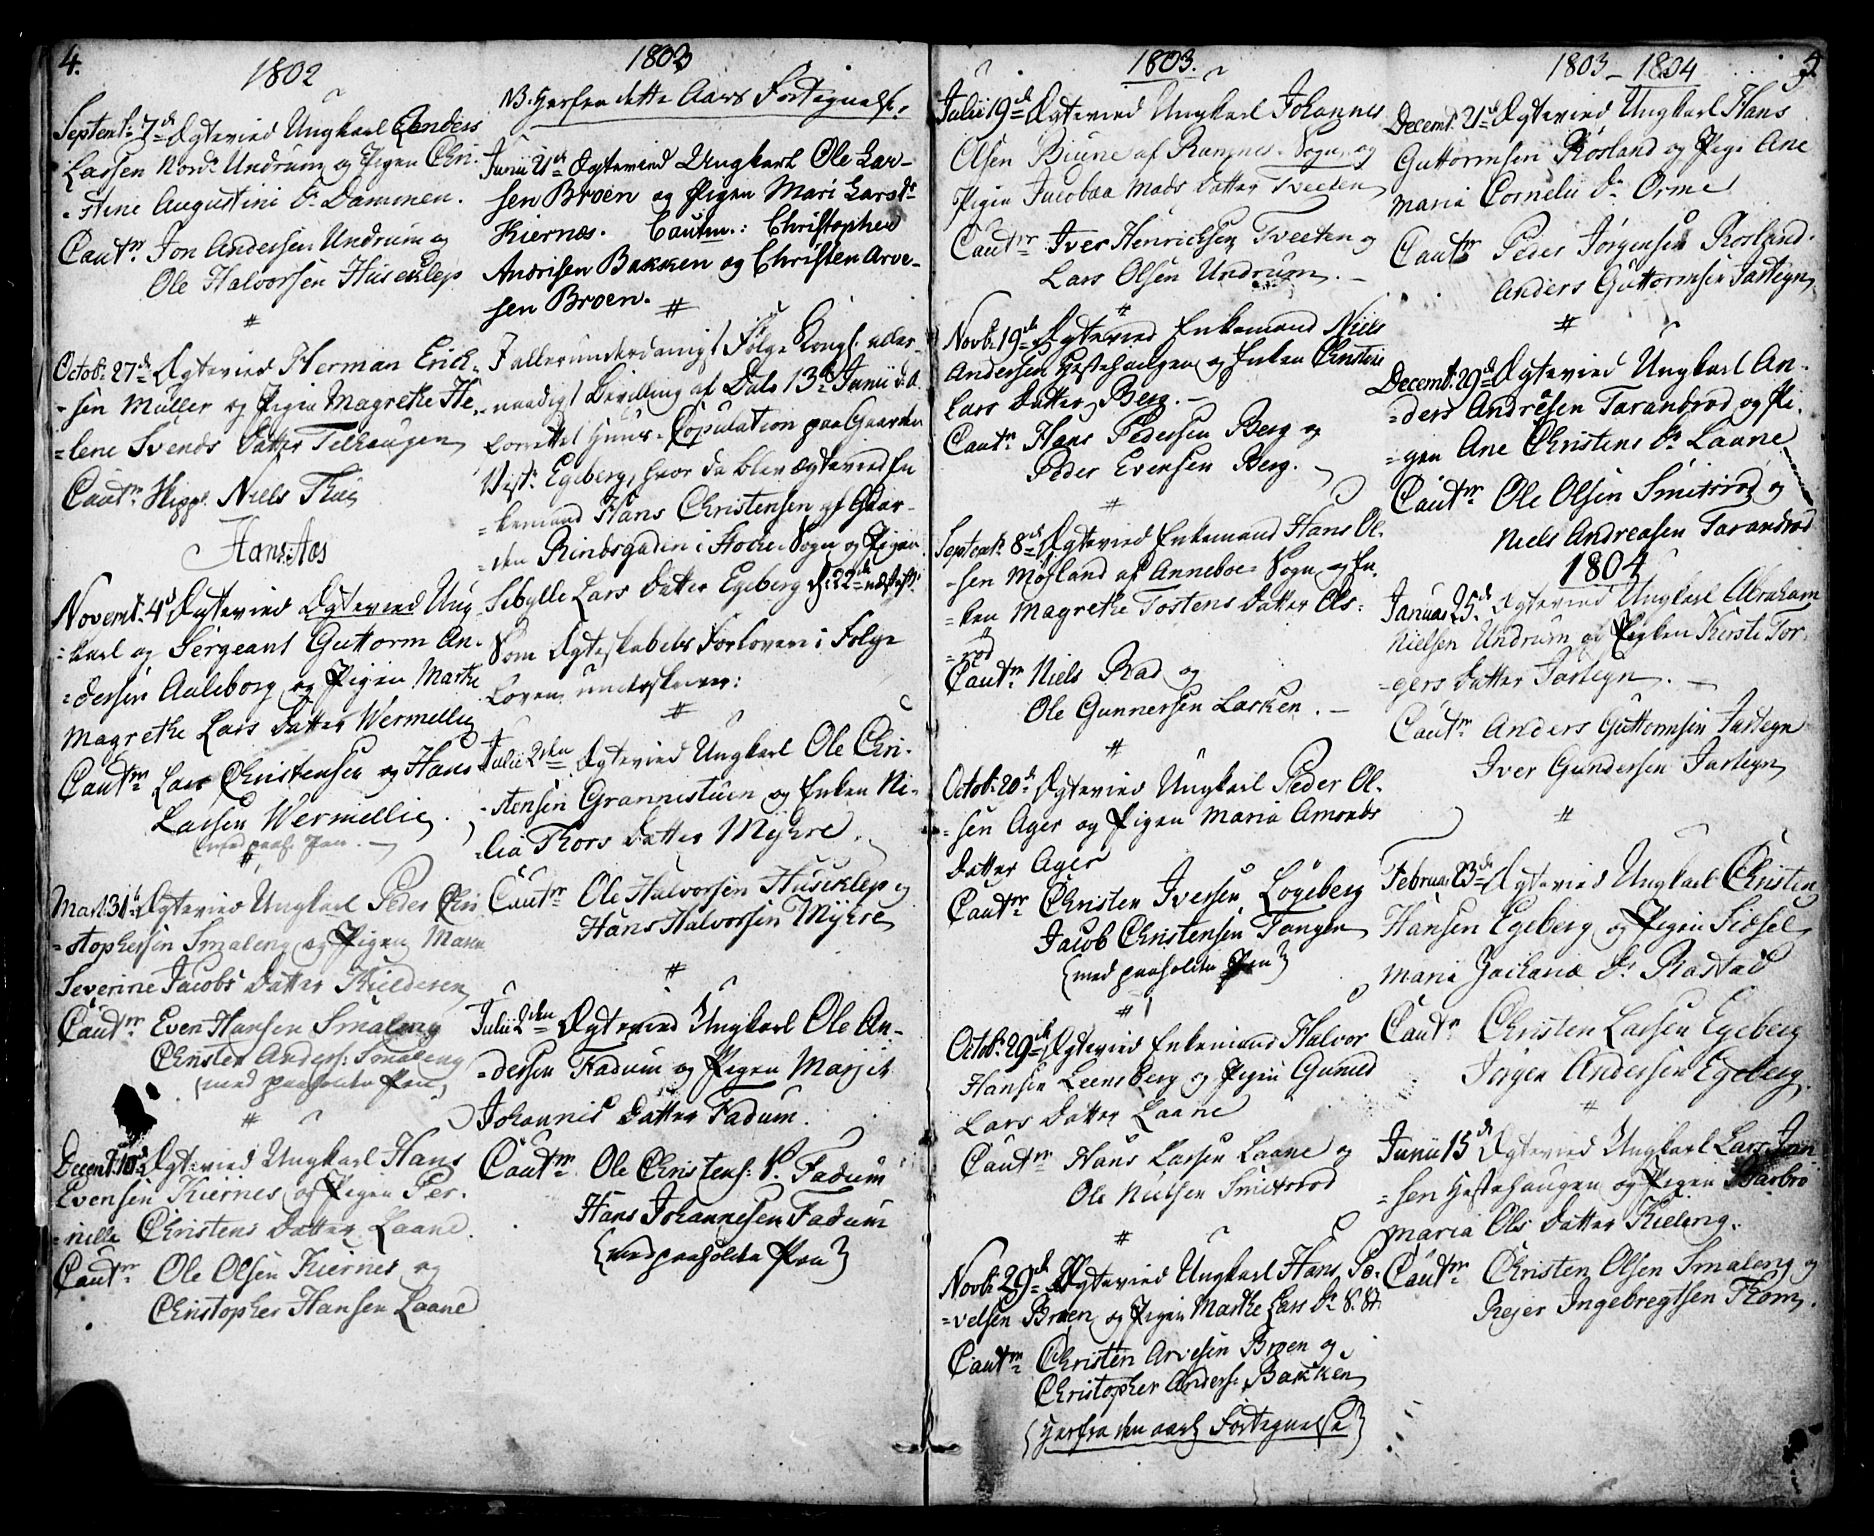 4.
1802
Septembr 7de Ægteviet Ungkarl Anders
Larsen Nord. Undrum og Pigen Chri-
-stine Augustini Dr Dammen.
Cautr Jon Andersen Undrum og
Ole Halvorsen Huseklep
#
Octobr 27de Ægteviet Herman Erich-
-sen Müller og Pigen Magrethe He-
-lene Svends Datter Telhaugen
Cautr Skippr Niels Thue
Hans Aas
Novembr 4de Ægteviet Ægteviet Ung-
-karl og Sergeant Guttorm An-
-dersen Auleborg og Pigen Marthe
Magrethe Lars Datter Wermellie
Cautr Lars Christensen og Hans
Larsen Wermellie.
(med paah. Pen.
#
Mart. 31te Ægteviet Ungkarl Peder Chri-
-stophersen Smaleng og Pigen Maren
Severine Jacobs Datter Kieldsren
Cautr Even Hansen Smaleng
Christen Anders: Smaleng
(med paaholden Pen)
#
Decembr 10de Ægteviet Ungkarl Hans
Evensen Kiernes og Pigen Per-
-nille Christens Datter Laane.
Cautr Ole Olsen Kiernes og
Christopher Hansen Laane
1803
NB. Herfra dette Aars Fortegnelse,
Junii 21de Ægteviet Ungkarl Ole Lar-
sen Broen og Pigen Mari Larsdr
Kiernæs. Cautm.: Christopher
Andrisen Bakken og Christen Arve-
sen Broen.
#
I allerunderdanigst Følge Kongl. aller-
naadigst Bevilling af Dato 13de Junii d.A.
forrettet Huus-Copulation paa Gaarden
Vest. Egeberg, hvor da blev ægteviet En-
-kemand Hans Christensen af Gaar-
-den Rindsgaden i Hoche-Sogn og Pigen
Sibylle Lars Datter Egeberg d: 22de næstefter
Som Ægteskabets Forlovere i Følge
Loven underskrever:
#
Julii 2den Ægteviet Ungkarl Ole Chri-
-stensen Grannistuen og Enken Ni-
-lia Thors Datter Myhre.
Cautr Ole Halvorsen Huseklep og
Hans Halvorsen Myhre
#
Julii 2den Ægteviet Ungkarl Ole An-
-dersen Fadum og Pigen Marjet
Johannis Datter Fadum.
Cautr Ole Christens: S. Fadum
Hans Johannesen Fadum
(med paaholden Pen)
1803.
Julii 19de Ægteviet Ungkarl Johannes
Olsen Biune af Ramnes-Sogn og
Pigen Jacobaa Mads Datter Tveeten
Cautr Iver Henrichsen Tveeten og
Lars Olsen Undrum.
#
Novbr 19de Ægteviet Enkemand Niels
Andersen Hestehaugen og Enken Christine
Lars Datter Berg.
Cautr Hans Pedersen Berg og
Peder Evensen Berg.
#
Septembr 8de Ægteviet Enkemand Hans Ol-
-sen Møjland af Anneboe-Sogn og En-
-ken Magrethe Tostens Datter Ols-
-rød
Cautr Niels Rad og
Ole Gunnersen Lasken.
#
Octobr 20de Ægteviet Ungkarl Peder Ol-
-sen Ager og Pigen Maria Amonds
Datter Ager
Cautr Christen Iversen Løgeberg
Jacob Christensen Tangen
(med paaholden Pen)
#
Octobr 29de Ægteviet Enkemand Halvor
Hansen Leensberg og Pigen Gunild
Lars Datter Laane
Cautr Hans Larsen Laane og
Ole Nielsen Smitsrød
#
Novbr 29de Ægteviet Ungkarl Hans Po-
-velsen Broen og Pigen Marthe Lars Dr S. St.
Cautr Christen Arvesen Broen og
Christopher Anders: Bakken
(Herfra den aarl: Fortegnelse)
5.
1803 - 1804
Decembr 21de Ægteviet Ungkarl Hans
Guttormsen Rosland og Pige Ane
Maria Corneli Dr Orme
Cautr Peder Jørgensen Rosland.
Anders Guttormsen Jartegn
#
Decembr 29de Ægteviet Ungkarl An-
-ders Andresen Tarandrød og Pi-
-gen Ane Christens Dr Laane
Cautr Ole Olsen Smitsrød og
Niels Andreasen Tarandrød
1804
Januar 25de Ægteviet Ungkarl Abraham
Nielsen Undrum og Pigken Kirsti Tor-
-gers Datter Jartegn.
Cautr Anders Guttormsen Jartegn
Iver Gundersen Jartegn
#
Februar 23de Ægteviet Ungkarl Christen
Hansen Egeberg og Pigen Sidsel
Maria Zachariæ Dr Rastad
Cautr Christen Larsen Egeberg
Jørgen Andersen Egeberg.
#
Junii 15de Ægteviet Ungkarl Lars Jon-
-sen Hestehaugen og Pigen Barbro
Maria Ols Datter Kieleng.
Cautr Christen Olsen Smaleng og
Rejer Ingebregtsen Thom.